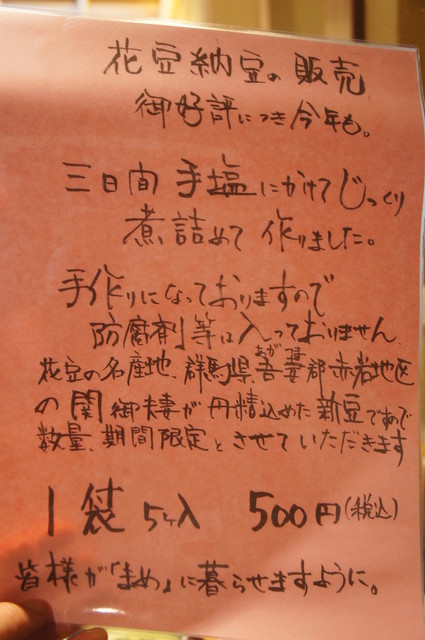 花豆納豆の販売
御好評につき今年も。
三日間手塩にかけてじっくり
煮詰めて作りました。
手作りになっておりますので
防腐剤等は入っておりません、
花豆の名産地、群馬県吾妻郡赤岩地区
おがつま
の関御夫妻が丹精込めた新豆であので
数量、期間限定とさせていただきます
1袋5ヶ入 500円(税込)
皆様が「まめ」に暮らせますように。